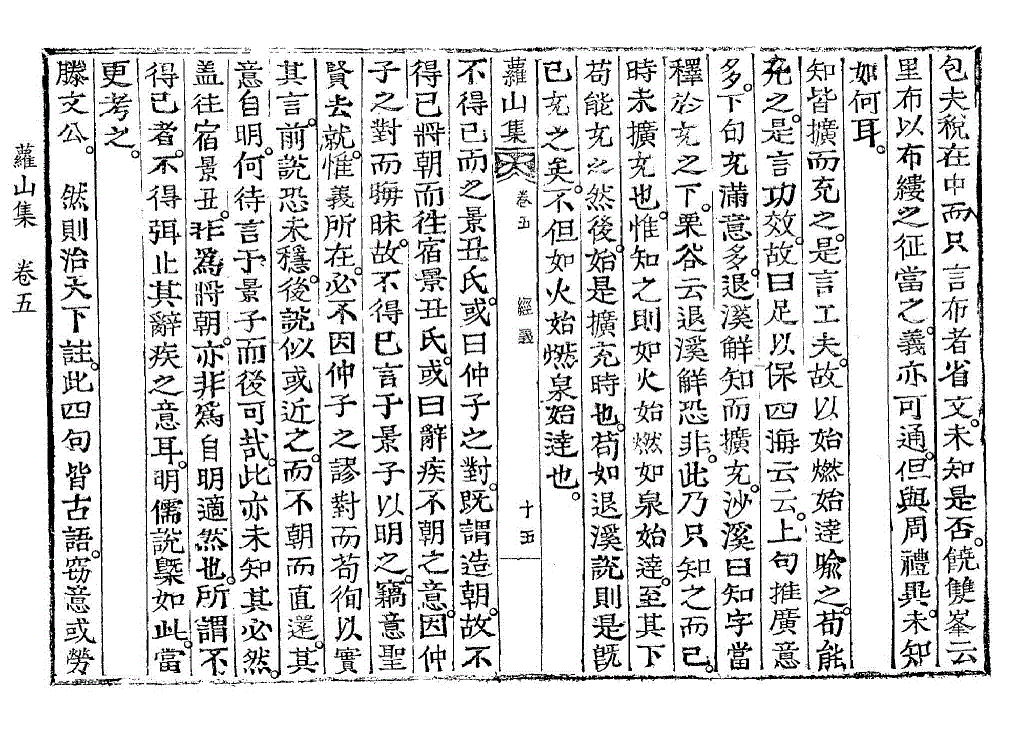 包夫稅在中而只言布者省文。未知是否。饒雙峯云
里布以布縷之征當之。義亦可通。但與周禮異。未知
如何耳。
知皆擴而充之。是言工夫。故以始燃始達喩之。苟能
充之。是言功效。故曰足以保四海云云。上句推廣意
多。下句充滿意多。退溪解知而擴充。沙溪曰知字當
釋於充之下。栗谷云退溪解恐非。此乃只知之而已。
時未擴充也。惟知之則如火始燃如泉始達。至其下
苟能充之然後。始是擴充時也。苟如退溪說則是旣
已充之矣。不但如火始燃泉始達也。
蘿山集 卷五 經義 十五
不得已而之景丑氏。或曰仲子之對。旣謂造朝。故不
得已將朝而徃宿景丑氏。或曰辭疾不朝之意。因仲
子之對而晦昧。故不得已言于景子以明之。竊意聖
賢去就。惟義所在。必不因仲子之謬對而苟徇以實
其言。前說恐未穩。後說似或近之。而不朝而直還。其
意自明。何待言于景子而後可哉。此亦未知其必然。
盖徃宿景丑。非爲將朝。亦非爲自明適然也。所謂不
得已者。不得弭止其辭疾之意耳。明儒說槩如此。當
更考之。
滕文公。 然則治天下註。此四句皆古語。窃意或勞
蘿山集 卷五